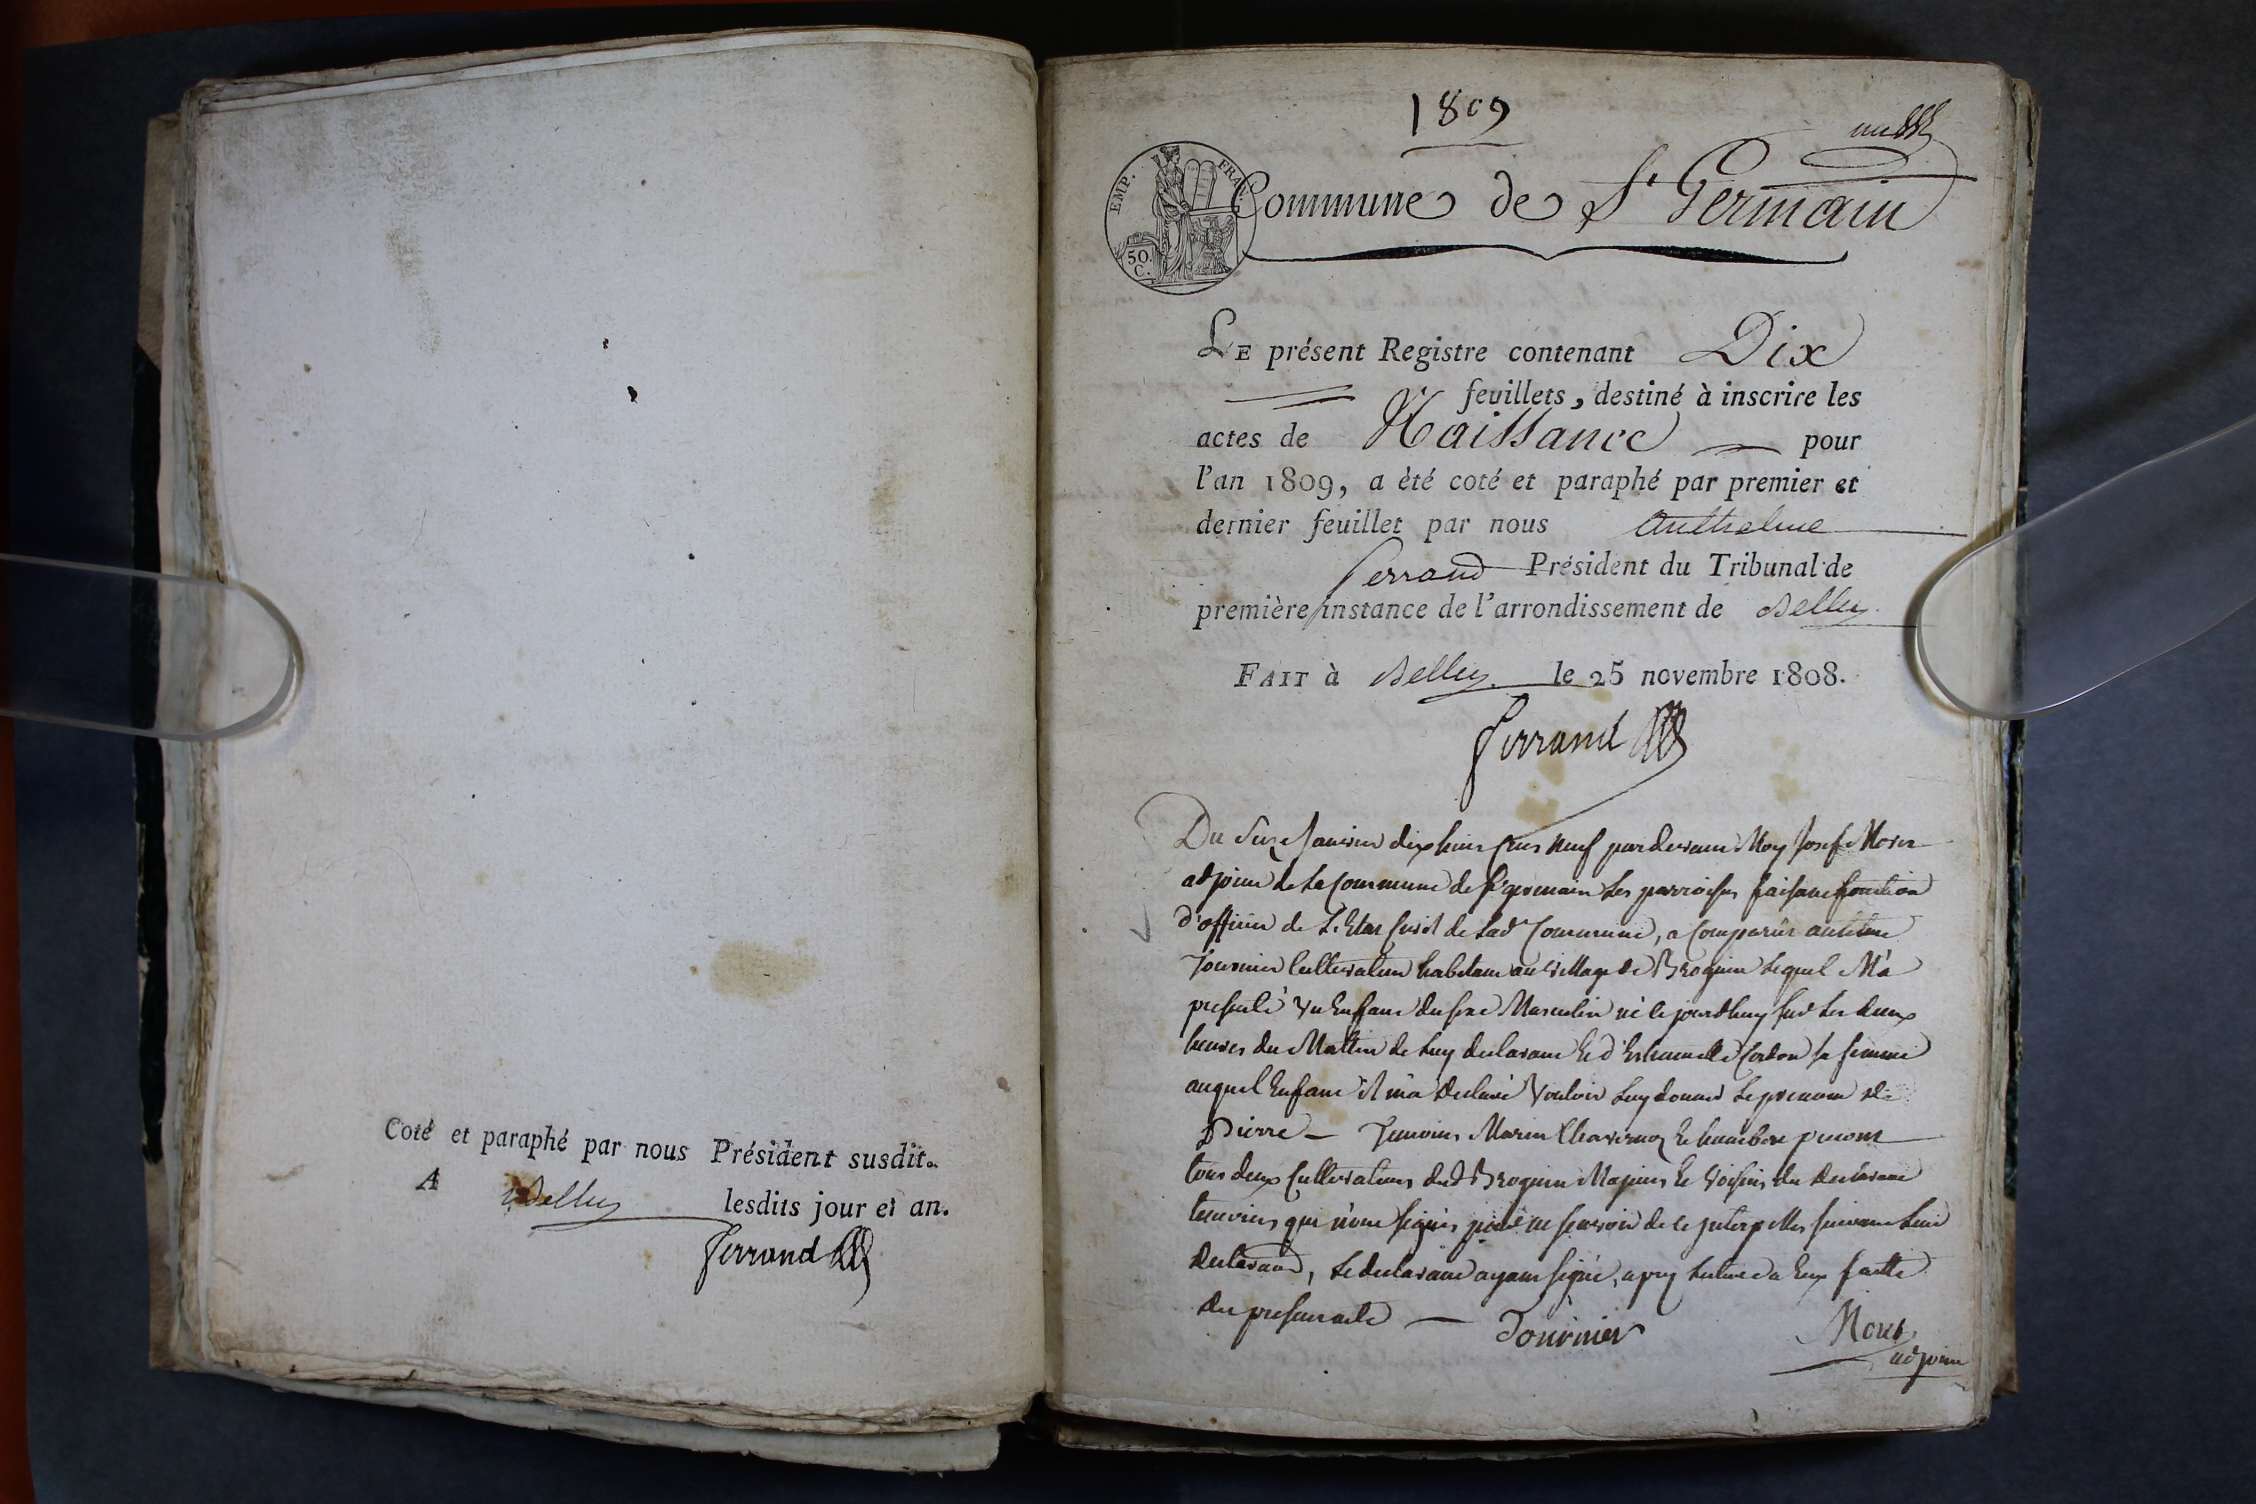 Coté et paraphé par nous Président susdit.
A Belley lesdits jour et an.
Ferrand
1809
un
EMP. FRAN.
50. C.
Commune de St Germain
LE présent Registre contenant Dix
feuillets, destiné à inscrire les
actes de Naissance pour
l'an 1809, a èté coté et paraphé par premier et
dernier feuillet par nous Anthelme
Ferrand Président du Tribunal de
première instance de l'arrondissement de Belley
FAIT à Belley le 25 novembre 1808.
Ferrand
Du Janvier dix huit Cens Neuf pardevant Moy Josef Moret
adjoint de la Commune de St germain Les parroisses faisant fonction
d'officier de L'Etat Civil de Lad Commune, a Comparût antelme
Tournier Cultivateur habitant au village de Brognin Lequel M'a
presenté Un Enfant du sexe Masculin né le jourdhuy Sur Les deux
heures du Matin de Luy declarant Et d' Cordon Sa femme
auquel Enfant il m'a declaré Vouloir Luy donner Le prenom de
Pierre Temoins Marin Et
tous deux Cultivateurs dud Brognin Majeurs Et Voisins du declarant
temoins qui n'ont signés pour ne sçavoir de ce Interpellés suivant Leur
declarant, Le declarant ayant signé, apres Lecture a Eux faitte
du present acte Tournier
Moret
adjoint